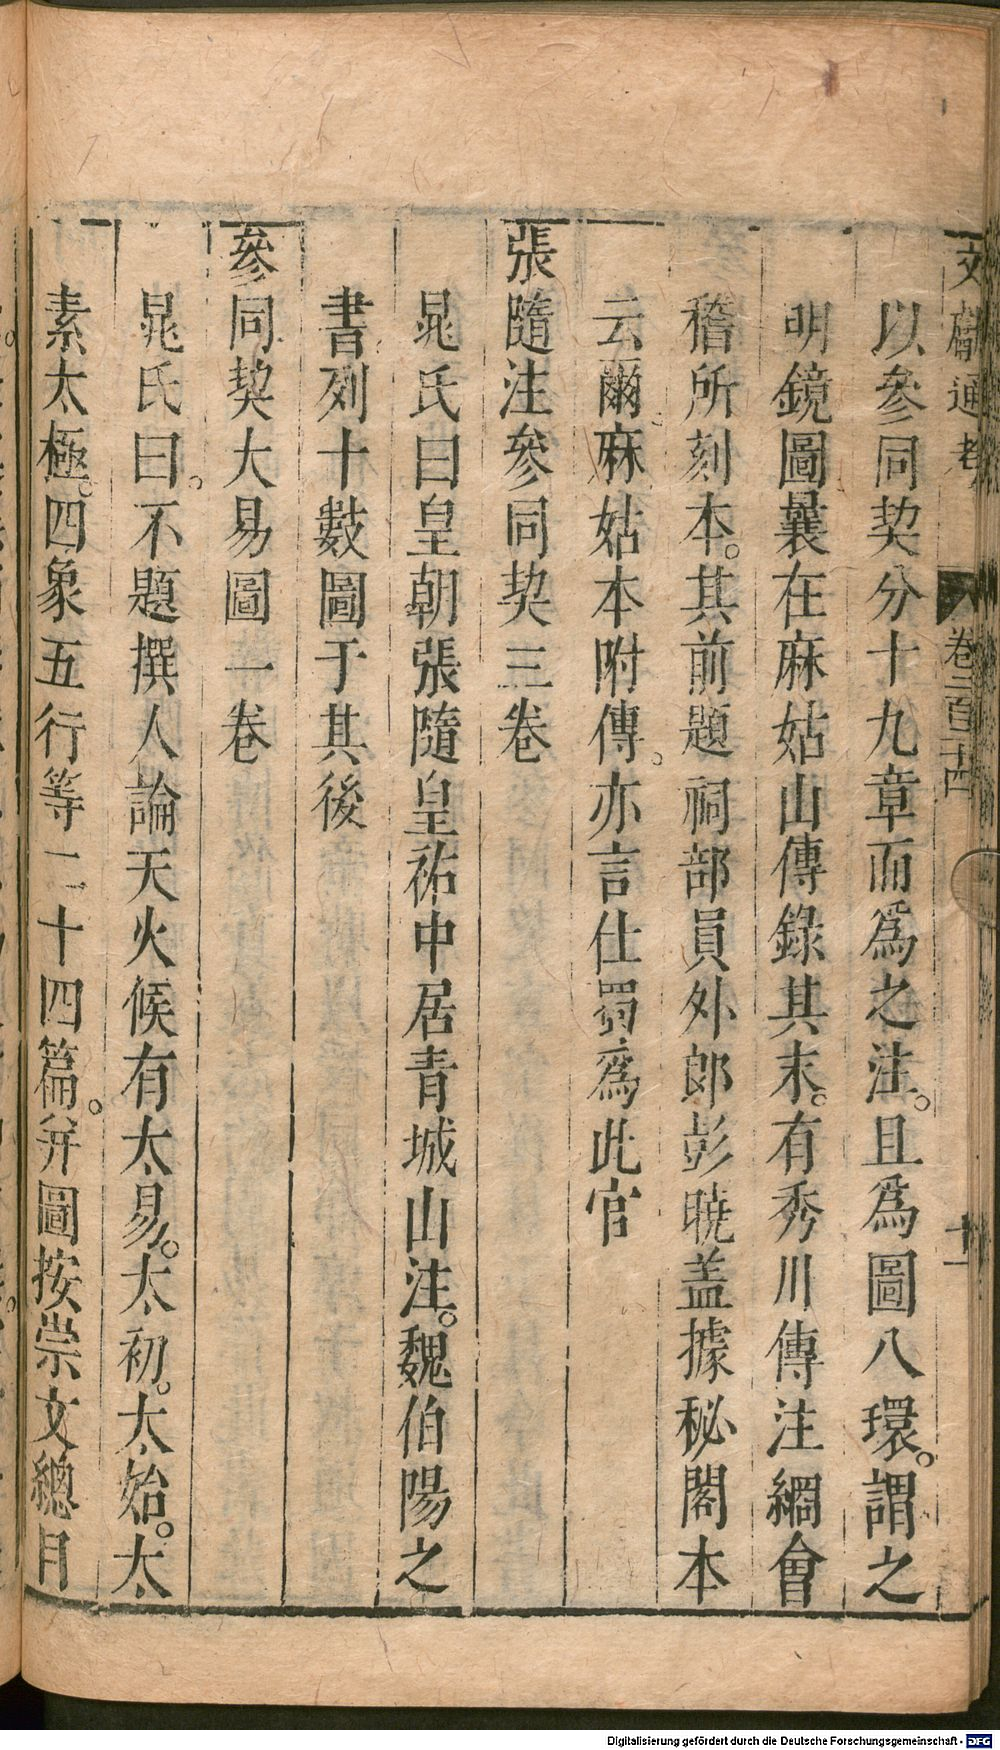 文獻通考 卷二百二十四 十一
以參同契分十九章而爲之注。且爲圖八環。謂之
明鏡圖曩在麻姑山傳錄其末。有秀川傳注網會
稽所刻本。其前題祠部員外郎彭曉盖據秘閣本
云爾麻姑本附傳。亦言仕蜀爲此官
張隨注參同契三卷
晁氏曰皇朝張隨皇祐中居青城山注。魏伯陽之
書列十數圖于其後
參同契大易圖一卷
晁氏曰。不題撰人論天火候有太易。太初。太始。太
素太極。四象五行等二十四篇。并圖按崇文總目
Digitalisierung gefördert durch die Deutsche Forschungsgemeinschaft - DFG